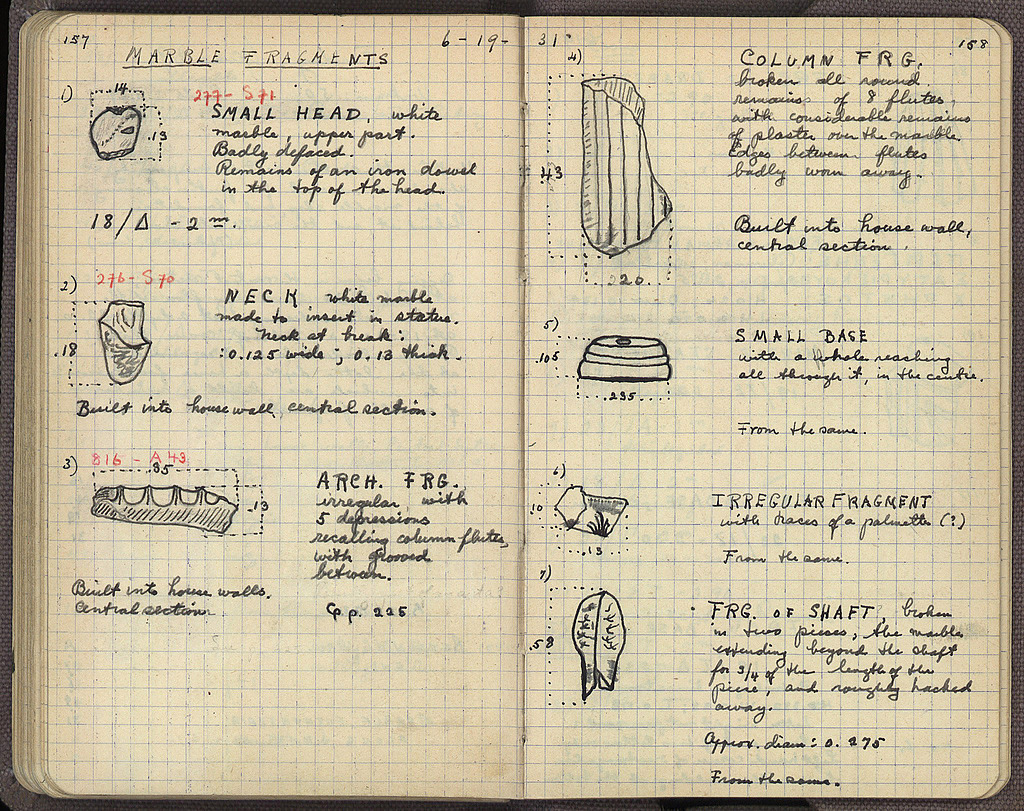 157
6-19-31
MARBLE FRAGMENTS
1)
.14
.13
277 - S71
SMALL HEAD, white
marble, upper part.
Badly defaced.
Remains of an iron dowel
in the top of the head.
18/Δ - 2 m.
2)
276 - S70
.18
NECK white marble
made to insert in statue.
Neck at break:
:0.125 wide; 0.13 thick.
Built into house wall, central section.
3)
816 - A43
.35
.13
ARCH. FRG.
irregular, with
5 depressions
recalling column flutes,
with grooves
between.
Built into house walls.
Central section
Cp p. 225
158
4)
.43
.220
COLUMN FRG.
broken all round
remains of 8 flutes,
with considerable remains
of plaster over the marble
Edges between flutes
badly worn away.
Built into house wall,
central section.
5)
.105
.235
SMALL BASE
with a hole reaching
all through it, in the centre.
From the same.
6)
.10
.13
IRREGULAR FRAGMENT
with traces of a palmette (?)
From the same.
7)
.58
FRG. OF SHAFT, broken
in two pieces; the marble
extending beyond the shaft
for 3/4 of the length of the
piece, and roughly hacked
away.
Approx. diam: 0.275
From the same.